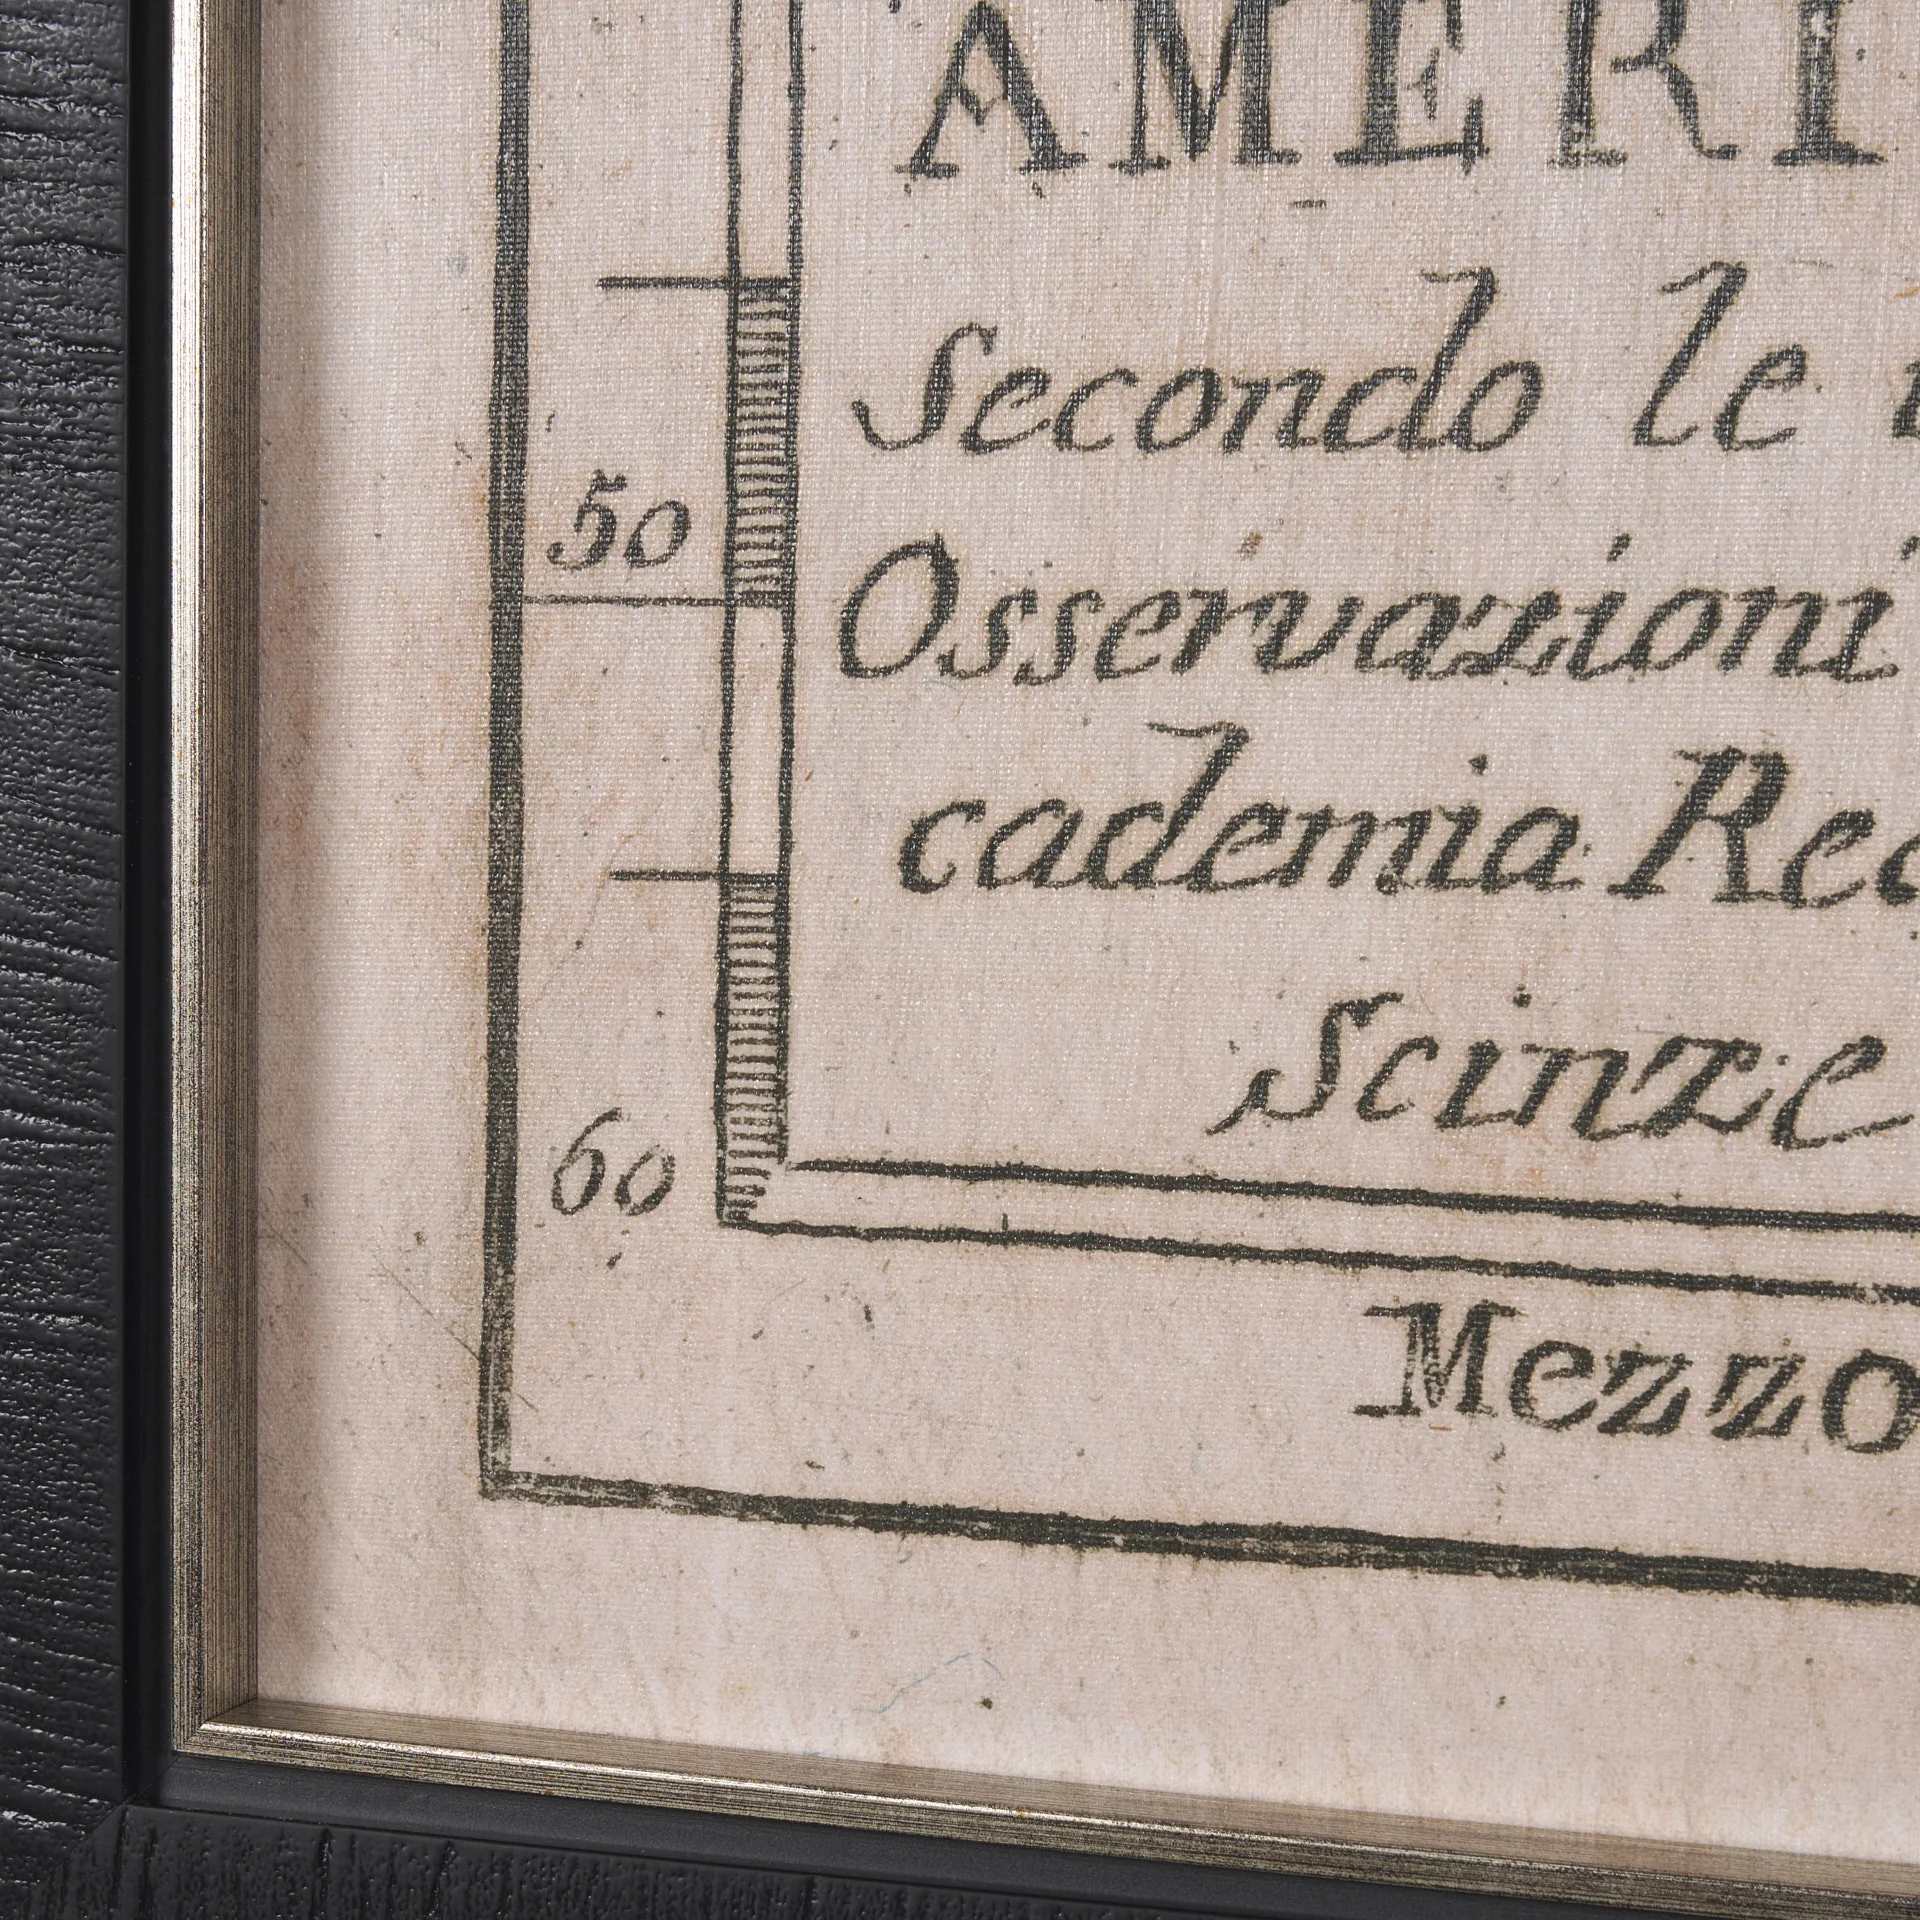 AMERI
Secondo le
50
Osservazioni
cademia Re
Scinze
60
Mezzo